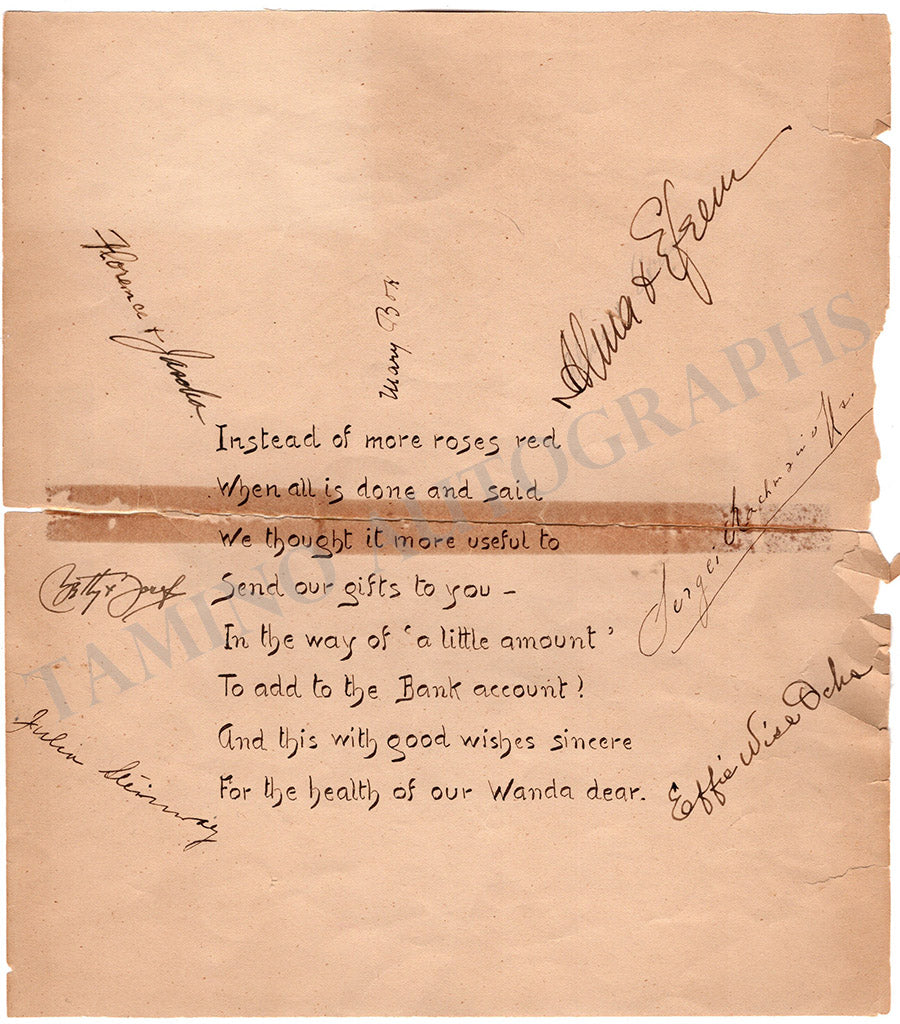 Alma & Efrem
Florence & Jascha
Mary Bok
Instead of more roses red
When all is done and said
We thought it more useful to
Send our gifts to you –
In the way of 'a little amount'
To add to the Bank account!
And this with good wishes sincere
For the health of our Wanda dear.
Sergei Rachmaninoff
Betty & Josef
Julia Steinway
Effie Wise Ochs
TAMINO AUTOGRAPHS